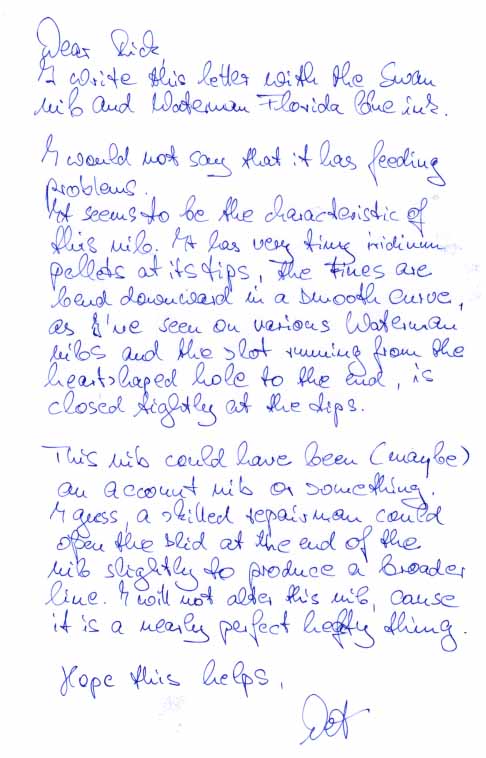 Dear Rick,
I write this letter with the Swan
nib and Waterman Florida blue ink.
I would not say that it has feeding
problems.
It seems to be the characteristic of
this nib. It has very tiny iridium
pellets at its tips, the tines are
bend downward in a smooth curve,
as I've seen on various Waterman
nibs and the slot running from the
heartshaped hole to the end, is
closed tightly at the tips.
This nib could have been (maybe)
an account nib or something.
I guess, a skilled repairman could
open the slid at the end of the
nib slightly to produce a broader
line. I will not alter this nib, cause
it is a nearly perfect hefty thing.
Hope this helps,